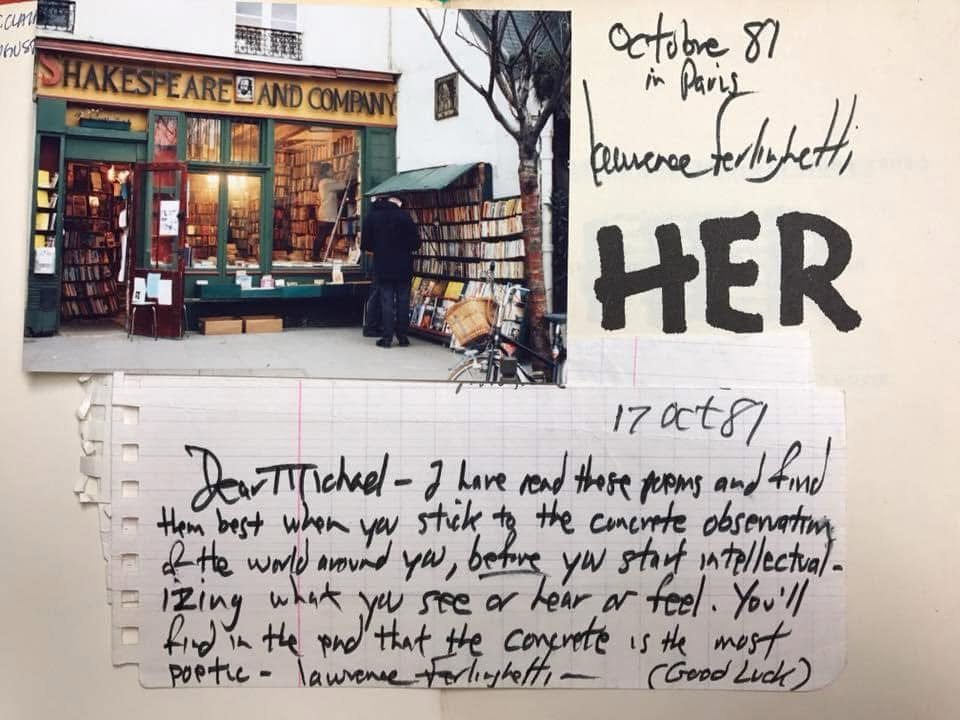 SHAKESPEARE AND COMPANY
Octobre 87
in Paris
Lawrence Ferlinghetti
HER
17 Oct 87
Dear Michael – I have read these poems and find
them best when you stick to the concrete observation
of the world around you, before you start intellectual-
izing what you see or hear or feel. You'll
find in the end that the concrete is the most
poetic – Lawrence Ferlinghetti – (Good Luck)